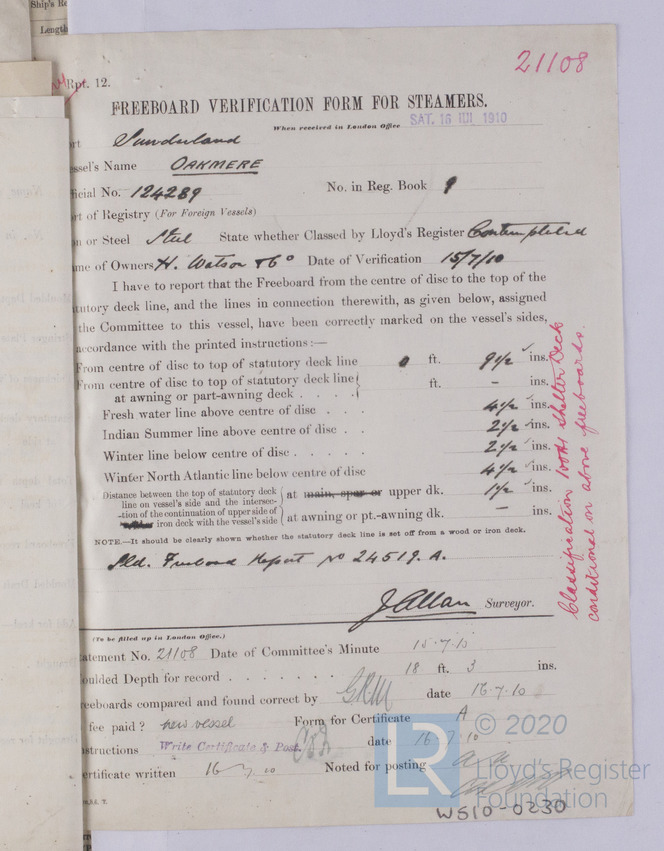 Ship's Re
Length
21108
Rpt. 12.
FREEBOARD VERIFICATION FORM FOR STEAMERS.
When received in London Office SAT. 16 JUL 1910
rt Sunderland
essel's Name OAKMERE
ficial No. 124289 No. in Reg. Book 9
rt of Registry (For Foreign Vessels)
on or Steel Steel State whether Classed by Lloyd's Register Contemplated
me of Owners H. Watson & Co Date of Verification 15/7/10
I have to report that the Freeboard from the centre of disc to the top of the
tutory deck line, and the lines in connection therewith, as given below, assigned
the Committee to this vessel, have been correctly marked on the vessel's sides,
accordance with the printed instructions:—
From centre of disc to top of statutory deck line 0 ft. 9 1/2 ins.
From centre of disc to top of statutory deck line
at awning or part-awning deck . . . . ft. - ins.
Fresh water line above centre of disc . . . 4 1/2 ins.
Indian Summer line above centre of disc . . 2 1/2 ins.
Winter line below centre of disc . . . . . 2 1/2 ins.
Winter North Atlantic line below centre of disc 4 1/2 ins.
Distance between the top of statutory deck
line on vessel's side and the intersec-
-tion of the continuation of upper side of
iron deck with the vessel's side
at main, spar or upper dk. 1 1/2 ins.
at awning or pt.-awning dk. — ins.
NOTE.—It should be clearly shown whether the statutory deck line is set off from a wood or iron deck.
Sld. Freeboard Report No 24519. A.
J Allan Surveyor.
Classification 100A1 Shelter Deck
conditional on above freeboards.
(To be filled up in London Office.)
tatement No. 21108 Date of Committee's Minute 15.7.10
oulded Depth for record . . . . . . . 18 ft. 3 ins.
reeboards compared and found correct by GRM date 16.7.10
fee paid? new vessel Form for Certificate A
structions Write Certificate & Post. date 16 7 10
ertificate written 16 7 10 Noted for posting
© 2020
LR
Lloyd's Register
Foundation
W510-0230